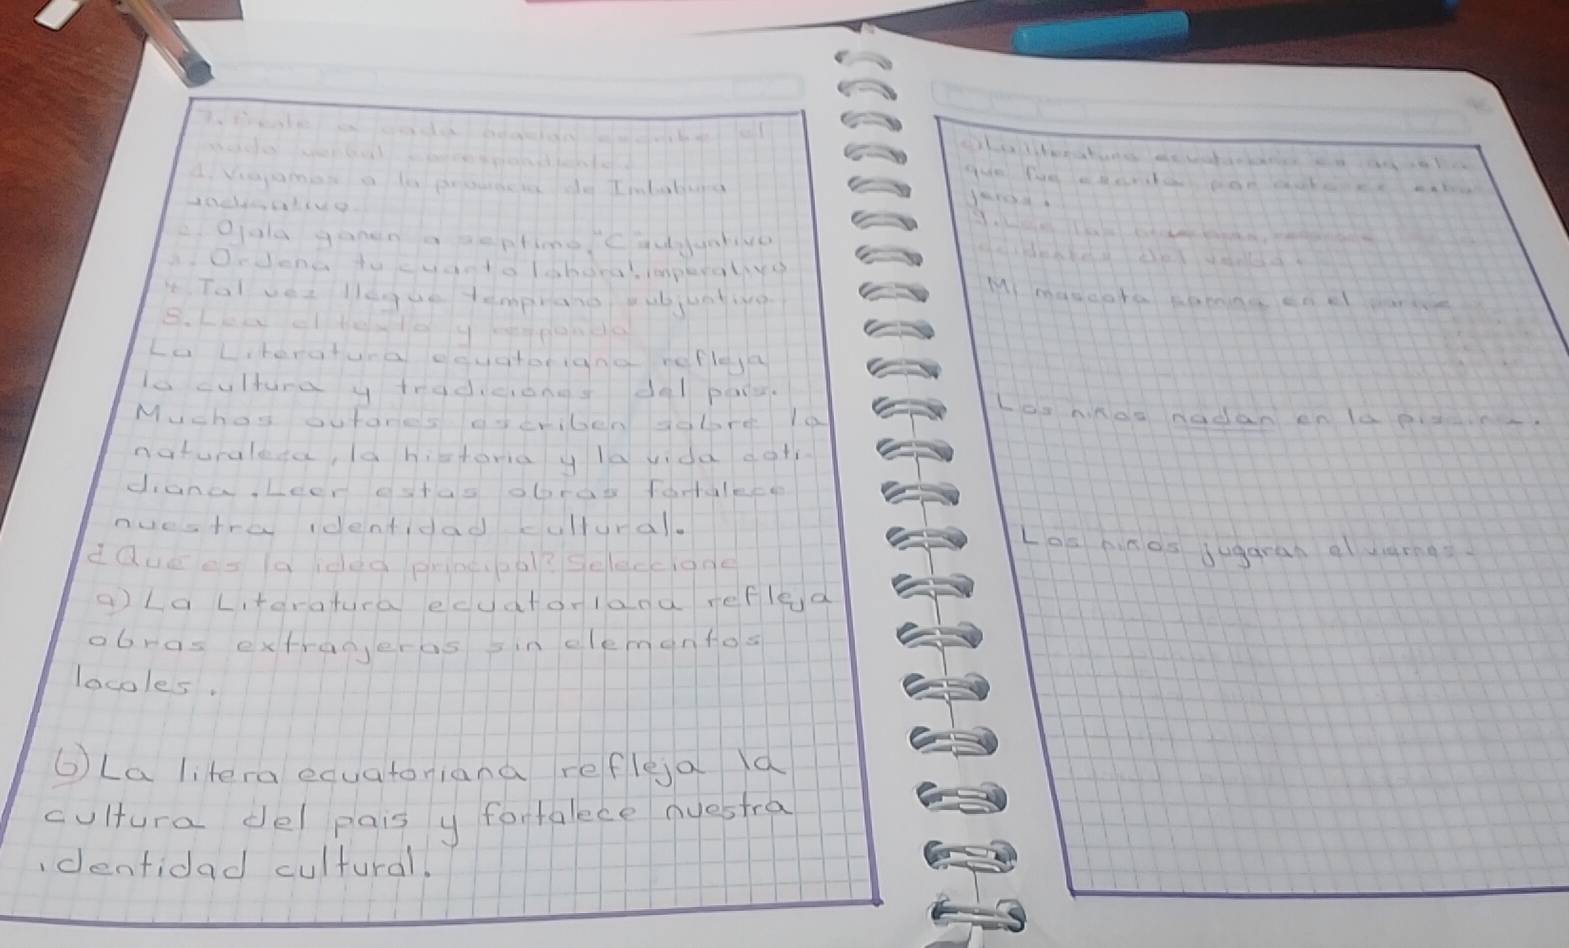 7. Frente a cada oración escribe el
modo verbal correspondiente.
1. Viajamos a la provincia de Imbabura
indicativo
2. Ojala ganen a septimo "C" subjuntivo
3. Ordena tu cuarto labora! imperativo
4. Tal vez llegue temprano subjuntivo
8. Lea el texto y responda
La Literatura ecuatoriana refleja
la cultura y tradiciones del pais.
Muchos autores escriben sobre la
naturaleza, la historia y la vida coti
diana. Leer estas obras fortalece
nuestra identidad cultural.
¿Que es la idea principal? Seleccione
a) La Literatura ecuatoriana refleja
obras extranjeras sin elementos
locales.
b) La litera ecuatoriana refleja la
cultura del pais y fortalece nuestra
identidad cultural.
c) La literatura ecuatoriana es
que fue escrita por autores extran
jeros.
9. Lee las oraciones,
accidentes del verbo.
Mi mascota camina en el parque
Los niños nadan en la piscina.
Los niños jugaran el viernes.